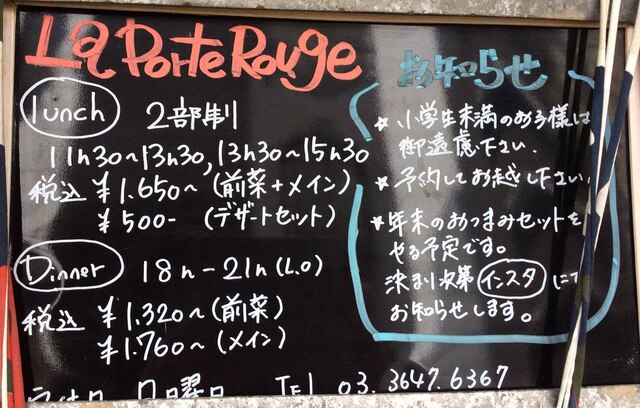 La Porte Rouge
lunch 2部制
11h30~13h30, 13h30~15h30
税込 ¥1.650~(前菜+メイン)
¥500- (デザートセット)
Dinner 18h-21h(L.O)
税込 ¥1.320~(前菜)
¥1.760~(メイン)
日曜日 TEL 03.3647.6367
お知らせ
★ 小学生未満のお子様は
御遠慮下さい.
★ 予約してお越し下さい.
★ 年末のおつまみセットを
やる予定です。
決まり次第 インスタ にて
お知らせします。